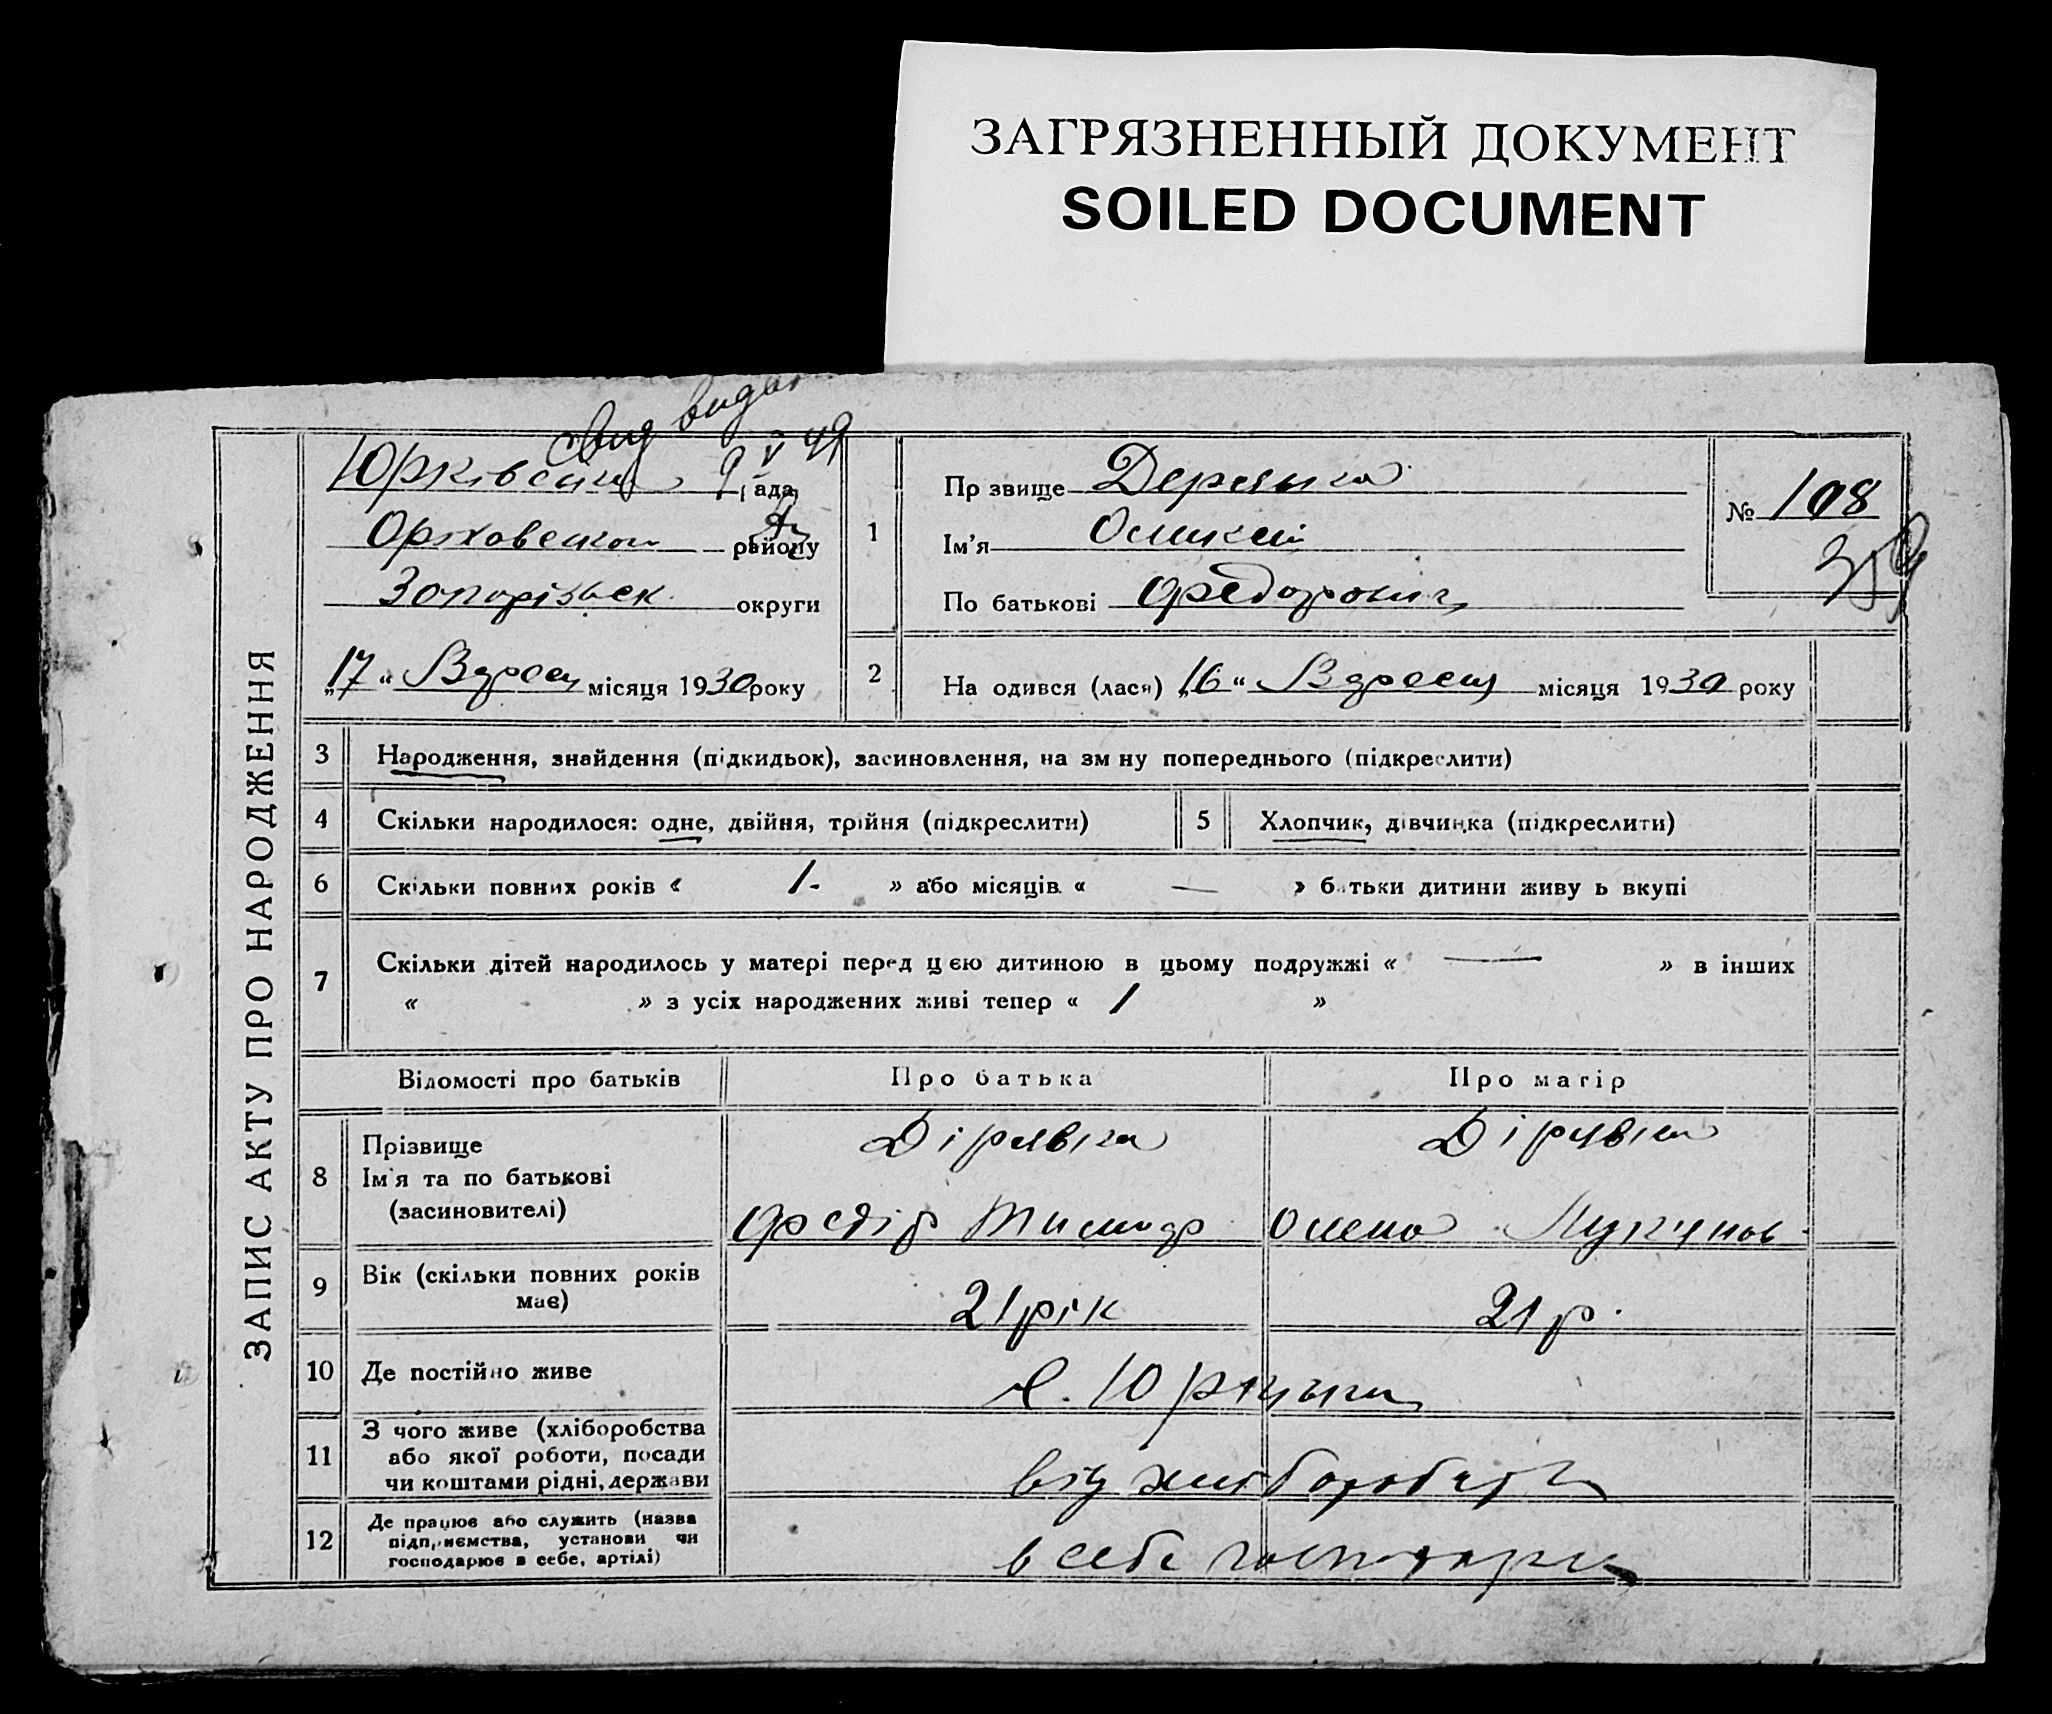 ЗАГРЯЗНЕННЫЙ ДОКУМЕНТ
SOILED DOCUMENT
ЗАПИС АКТУ ПРО НАРОДЖЕННЯ
Юрківська рада
Оріховского району
Запорізьск округи
„17“ Вересн місяця 1930 року
1
Пр звище
Ім’я
По батькові Федорович
№ 108
2
На одився (лася) „16“ Вересн місяця 1930 року
3 Народження, знайдення (підкидьок), засиновлення, на зм ну попереднього (підкреслити)
4 Скільки народилося: одне, двійня, трійня (підкреслити) 5 Хлопчик, дівчинка (підкреслити)
6 Скільки повних років « 1. » або місяців « — » батьки дитини живу ь вкупі
7 Скільки дітей народилось у матері перед цією дитиною в цьому подружжі « — » в інших
« » з усіх народжених живі тепер « 1 »
Відомості про батьків Про батька Про матір
8 Прізвище Дірявка Дірявка
Ім'я та по батькові
(засиновителі) Федір Тимофр Олена
9 Вік (скільки повних років має) 21 рік 21 р.
10 Де постійно живе с. Юрківка
11 З чого живе (хліборобства
або якої роботи, посади
чи коштами рідні, держави від хліборобств
12 Де працює або служить (назва
підприємства, установи чи
господарює в себе, артілі) в себе господарст